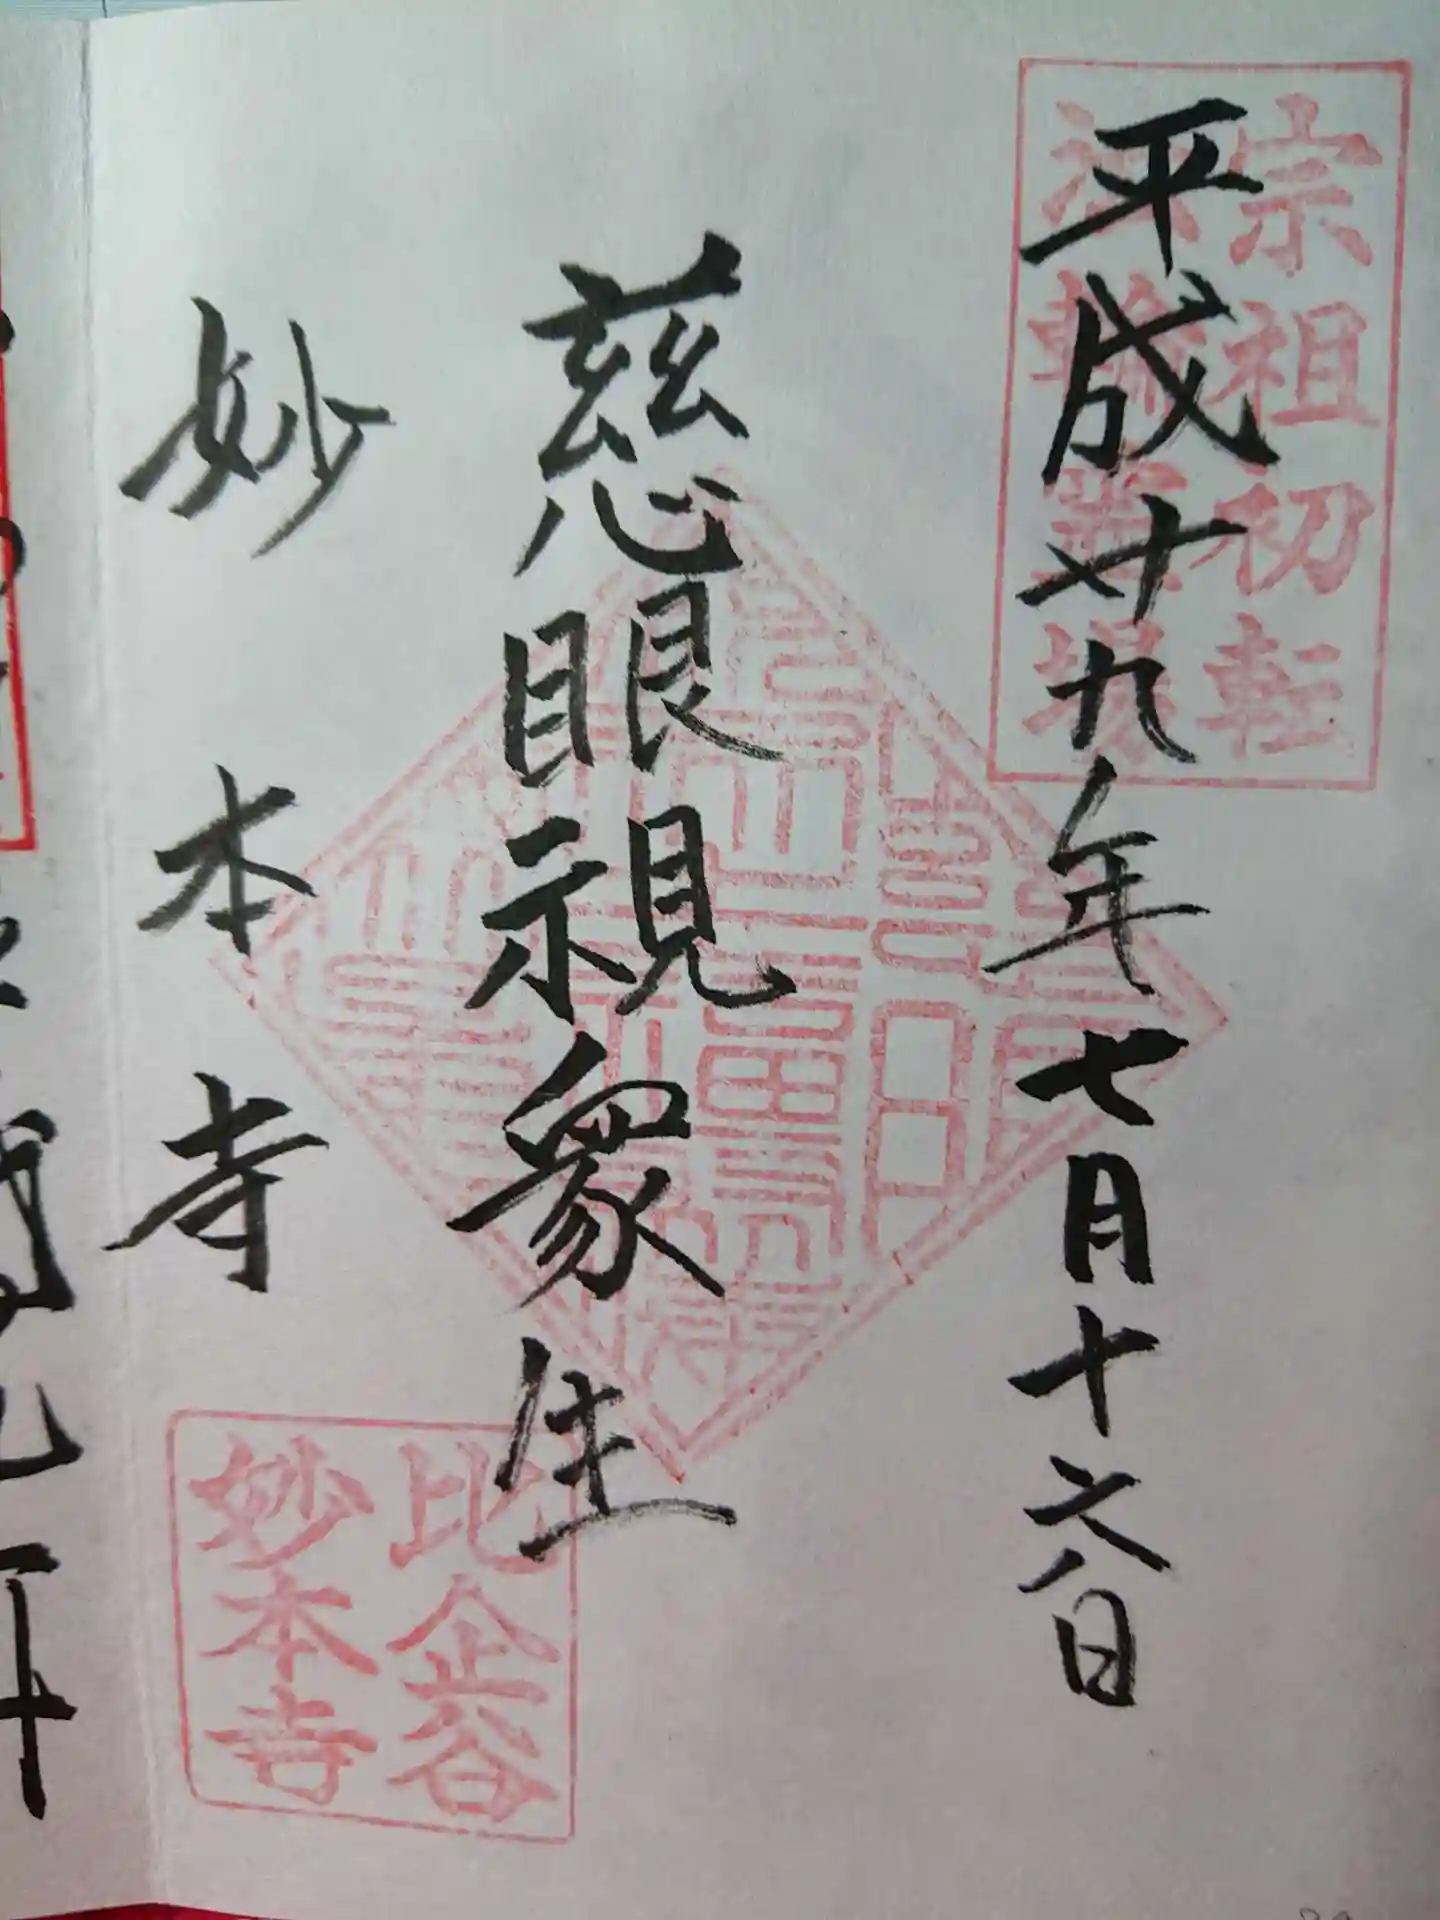 宗祖初転
法輪霊場
平成廿九年七月十六日
慈眼視衆生
妙本寺
比企谷
妙本寺